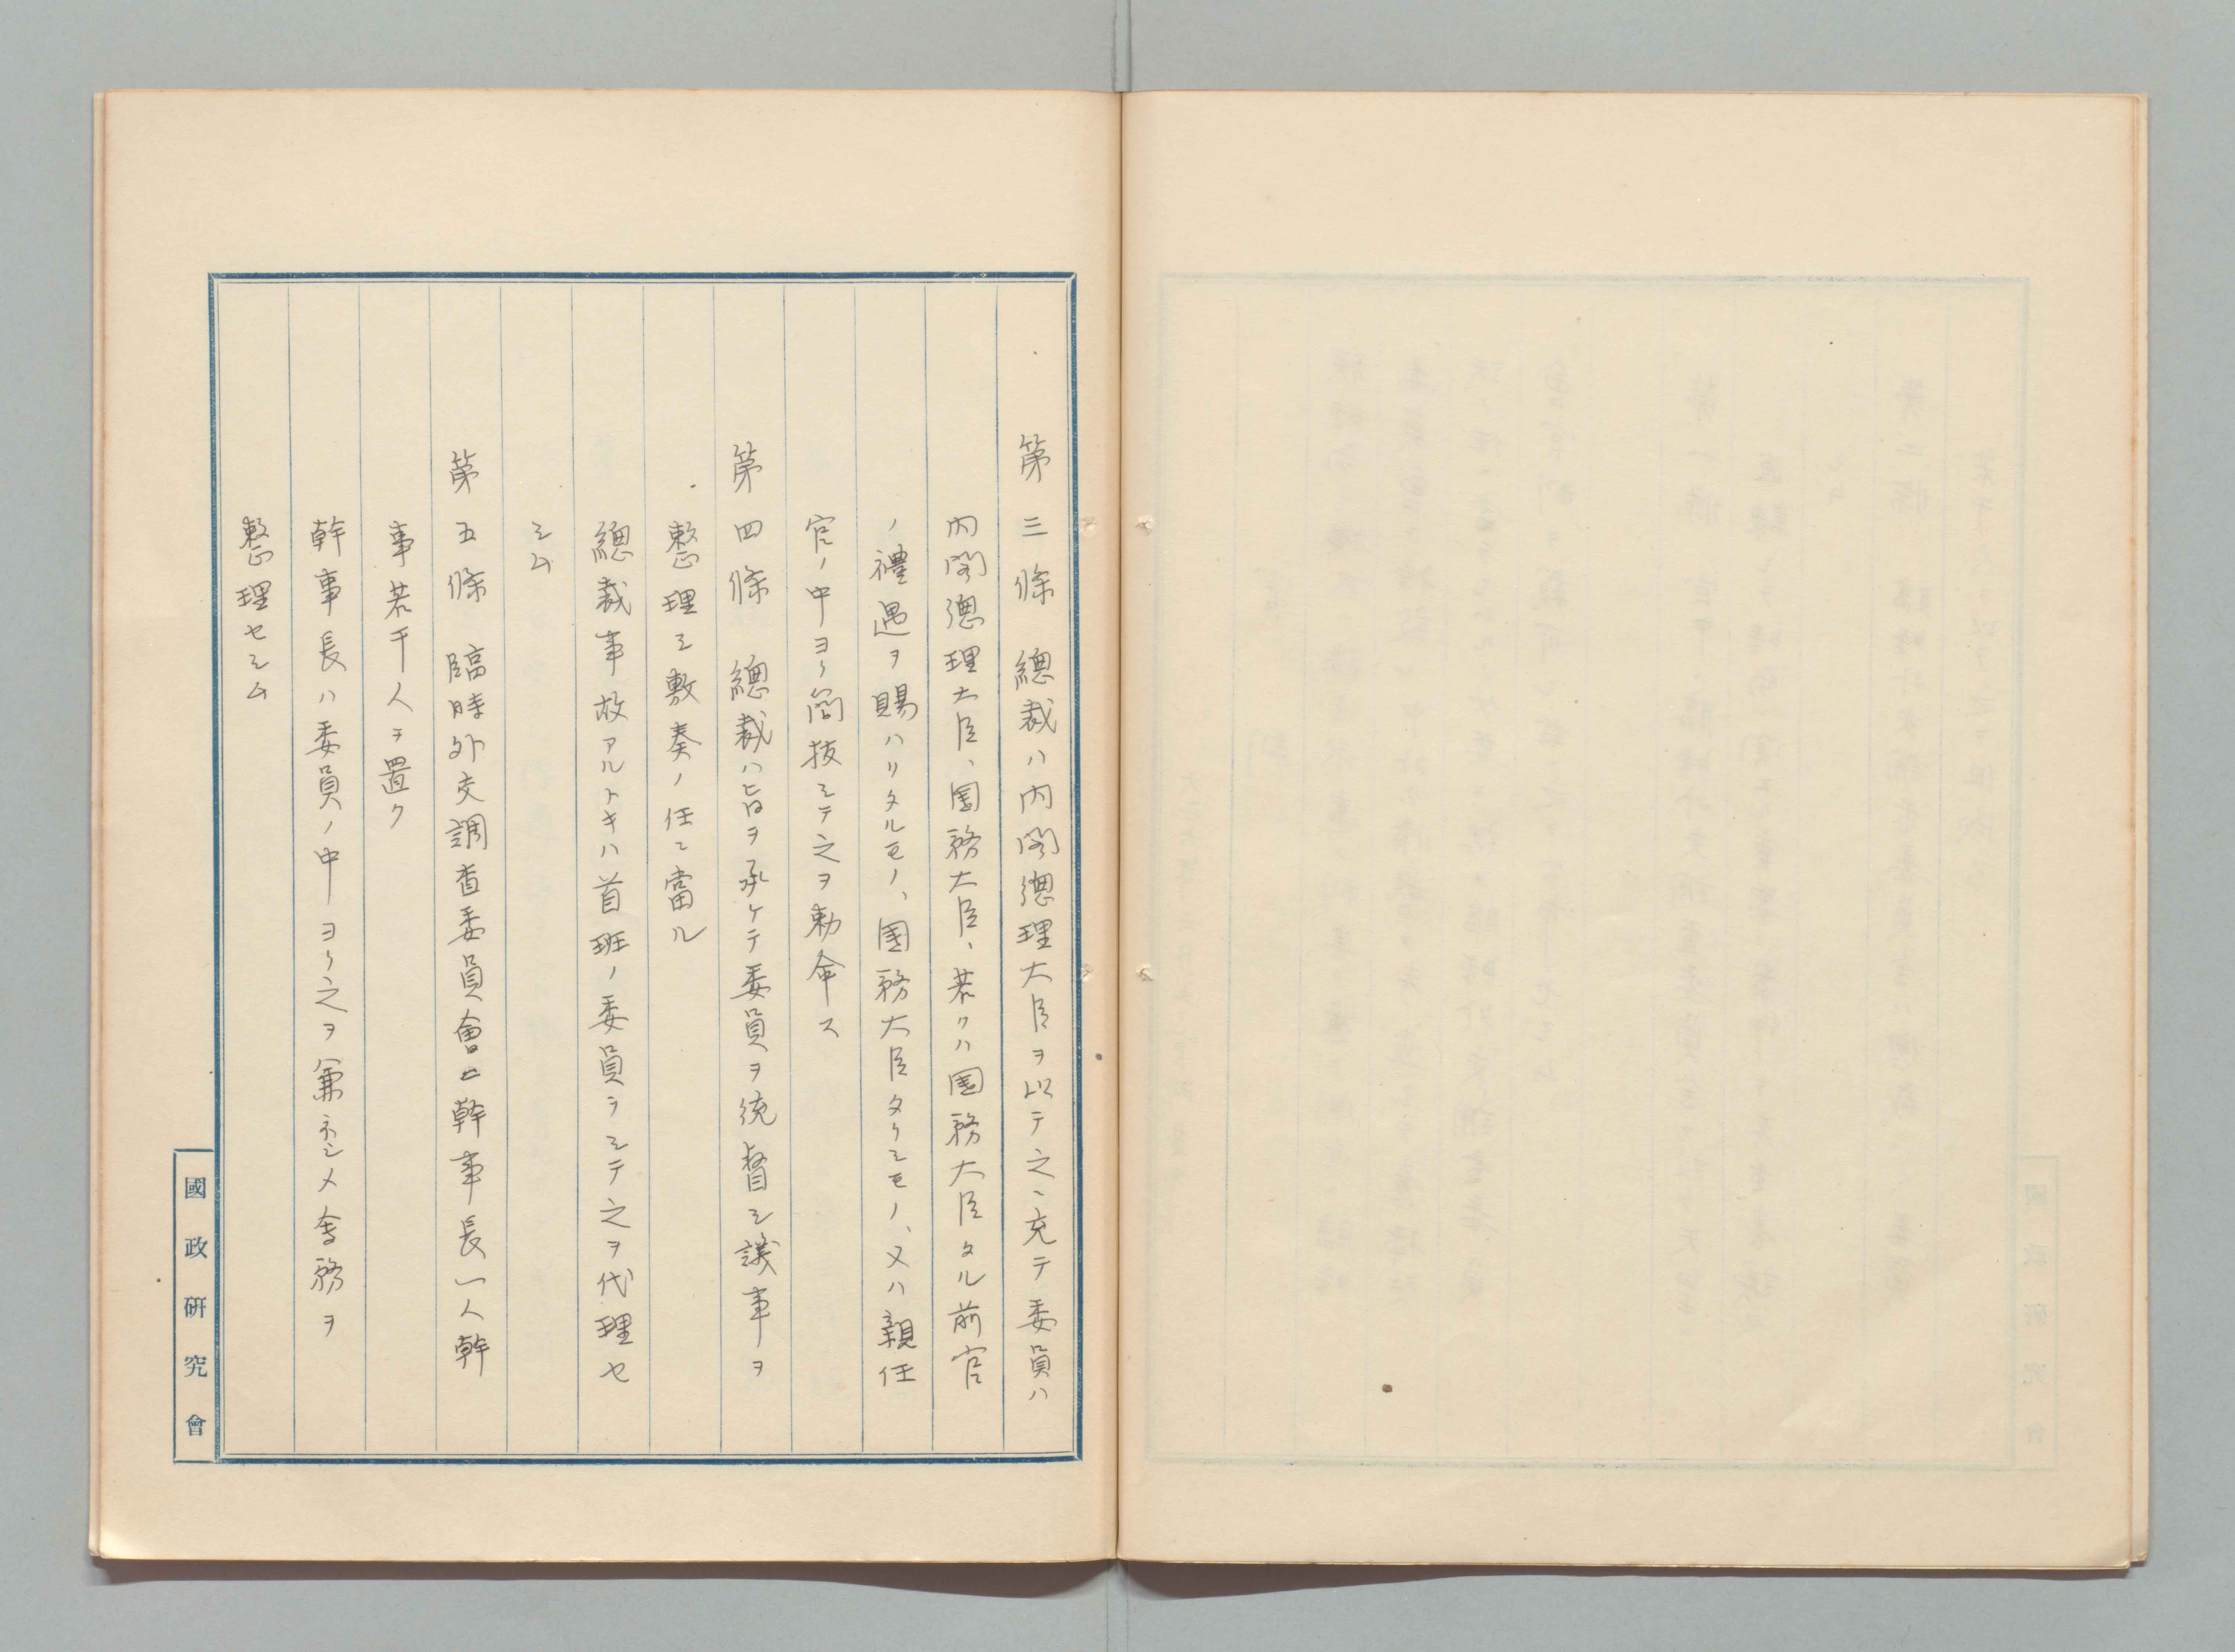 第三條　總裁ハ内閣總理大臣ヲ以テ之ニ充テ委員ハ
内閣總理大臣、国務大臣、若クハ国務大臣タル前官
ノ禮遇ヲ賜ハリタルモノ、国務大臣タリシモノ、又ハ親任
官ノ中ヨリ簡抜シテ之ヲ勅命ス
第四條　總裁ハ旨ヲ承ケテ委員ヲ統督シ議事ヲ
整理シ敷奏ノ任ニ當ル
總裁事故アルトキハ首班ノ委員ヲシテ之ヲ代理セ
シム
第五條　臨時外交調査委員會ニ幹事長一人幹
事若干人ヲ置ク
幹事長ハ委員ノ中ヨリ之ヲ兼ネシメ会務ヲ
整理セシム
國政研究會